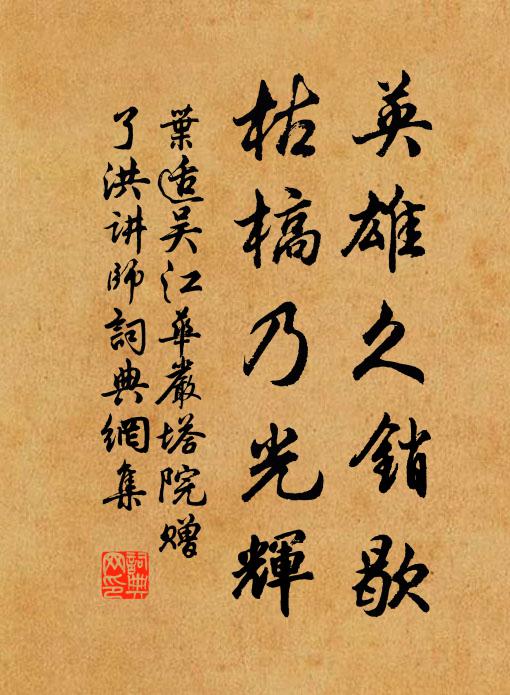 英雄久銷歇
枯槁乃光輝
葉适吴江華嚴塔院赠
了洪讲师詞典網集
詞典
网印